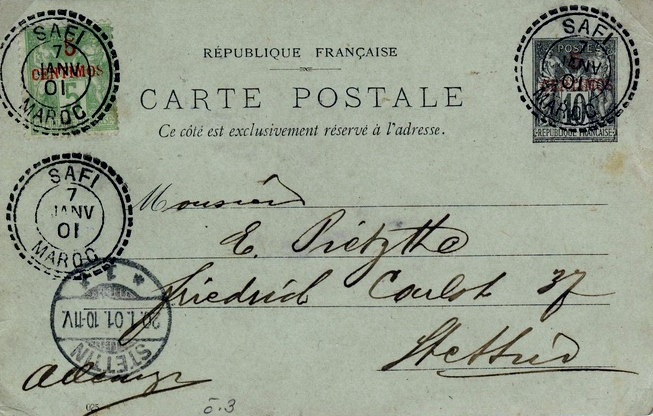 SAFI
7
JANV
01
MAROC
5
CENTIMOS
5
RÉPUBLIQUE FRANÇAISE
CARTE POSTALE
Ce côté est exclusivement réservé à l'adresse.
SAFI
JANV
01
MAROC
POSTE
CENTIMOS
10
RÉPUBLIQUE FRANÇAISE
SAFI
7
JANV
01
MAROC
Monsieur
E.
Friedrich 37
Stettin
20.1.01.10-11V.
STETTIN
025
ō.3